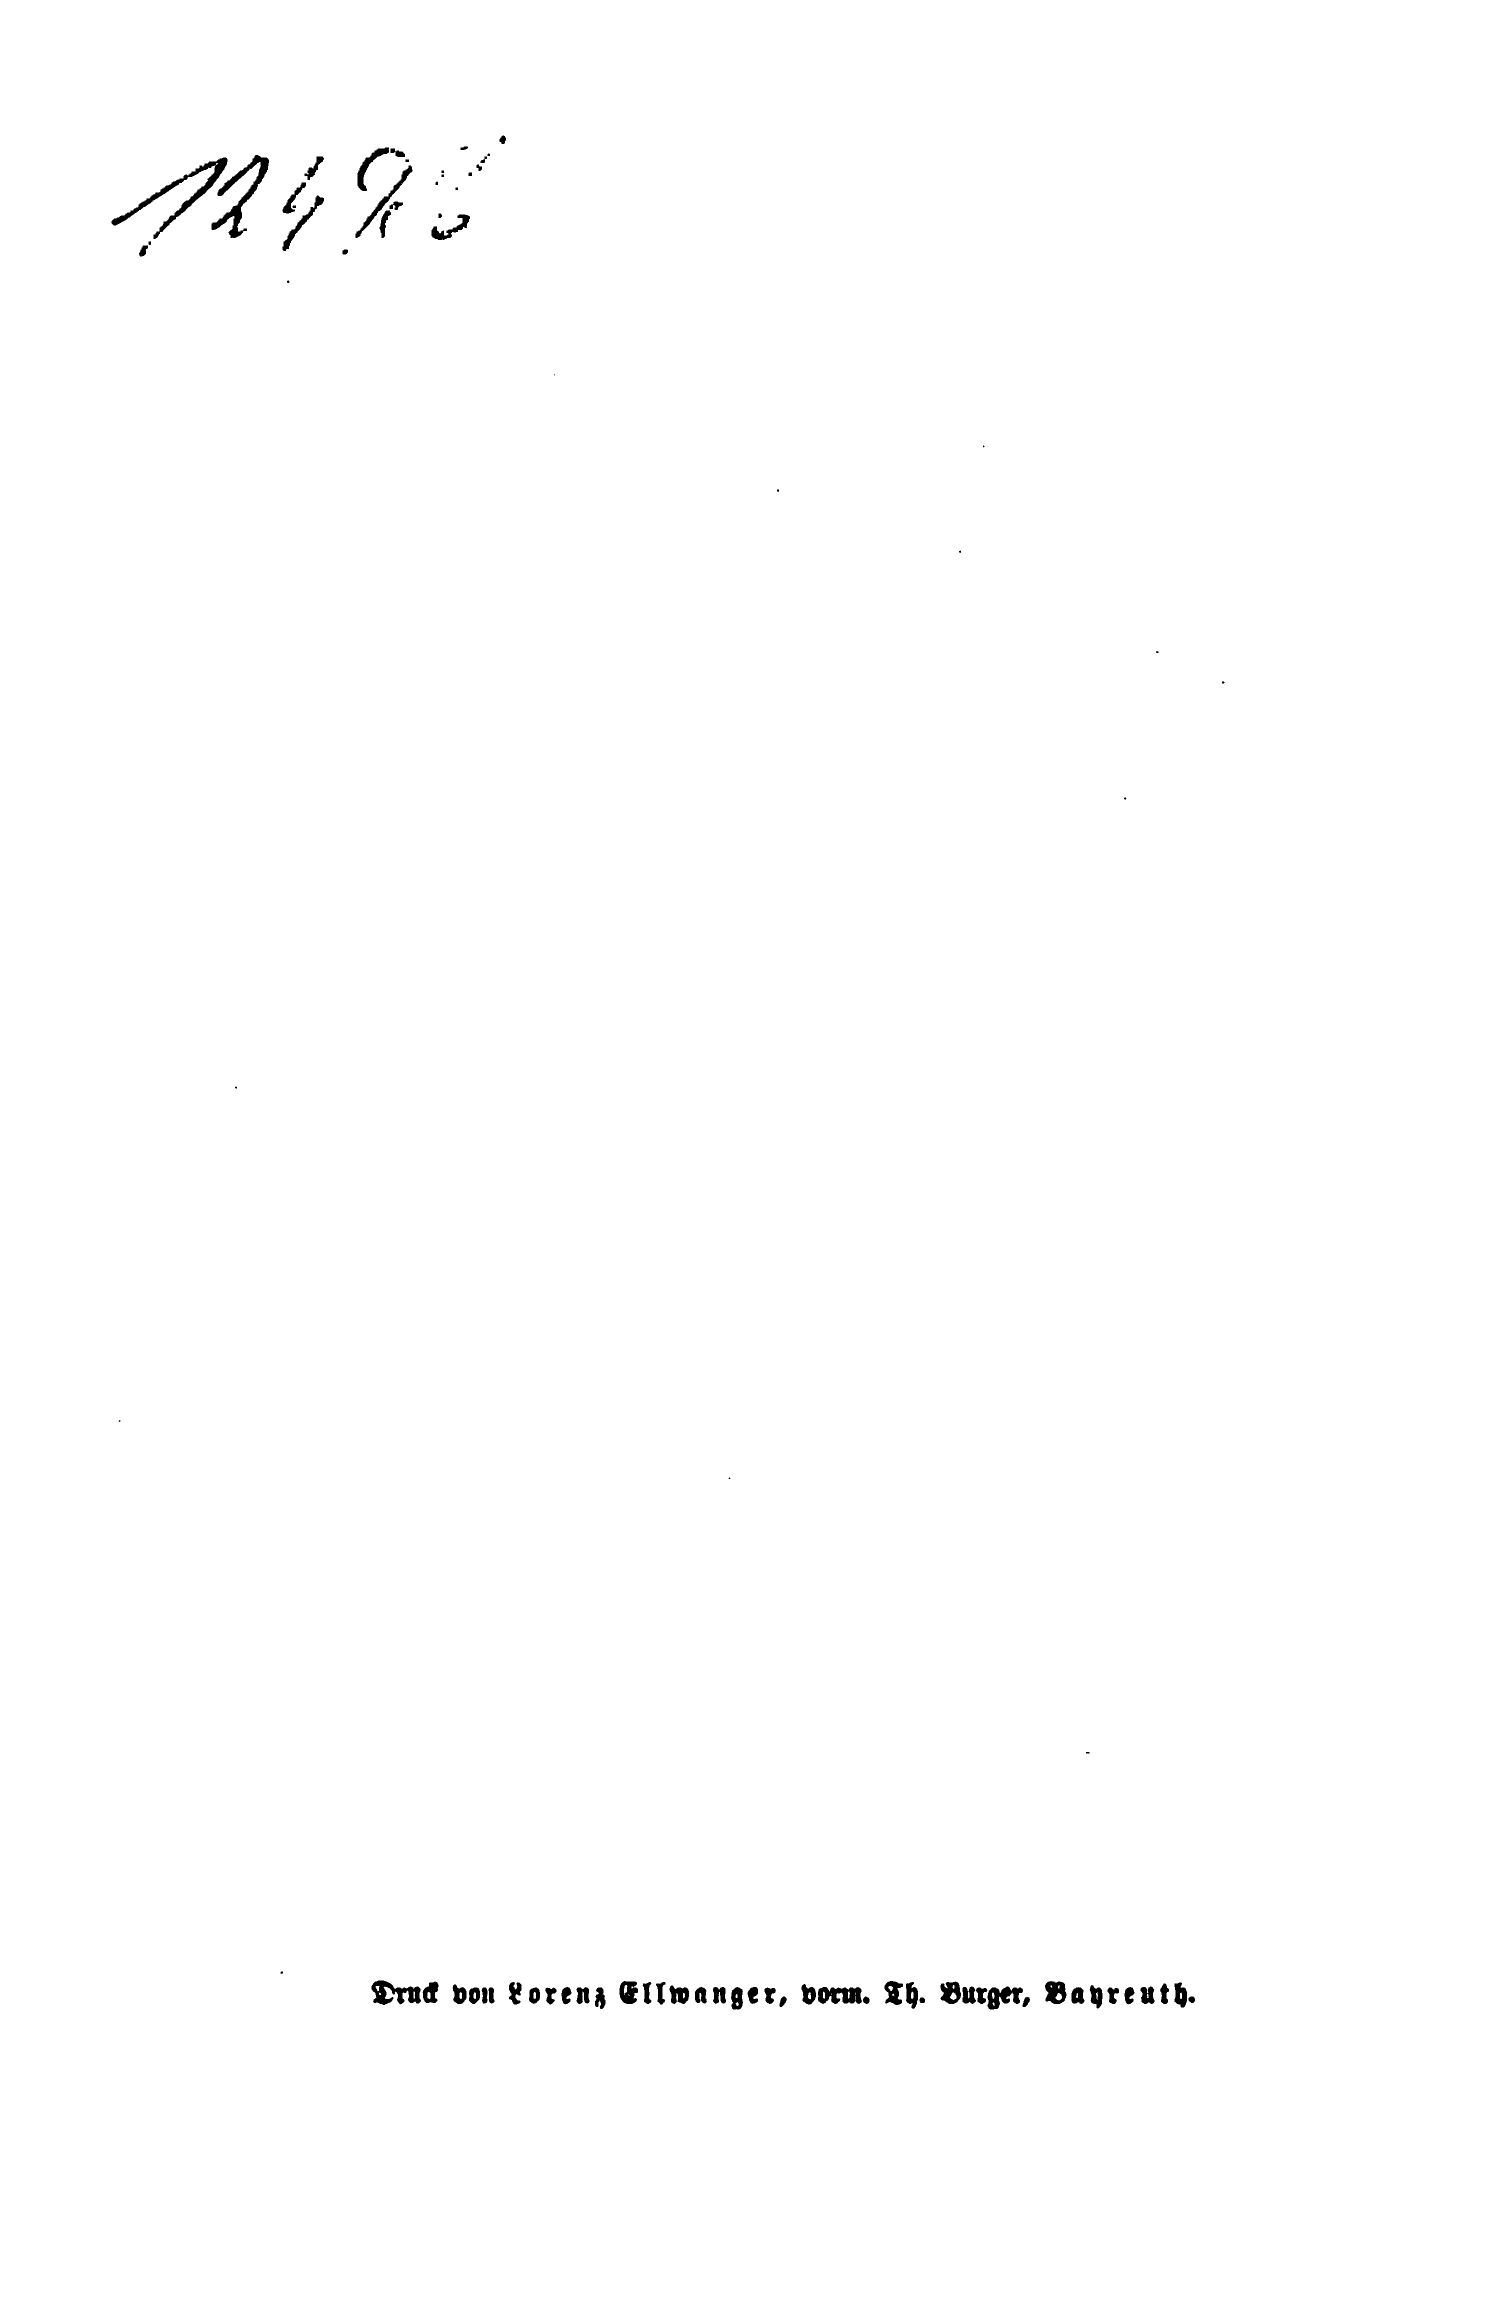 Druck von Lorenz Ellwanger, vorm. Th. Burger, Bayreuth.